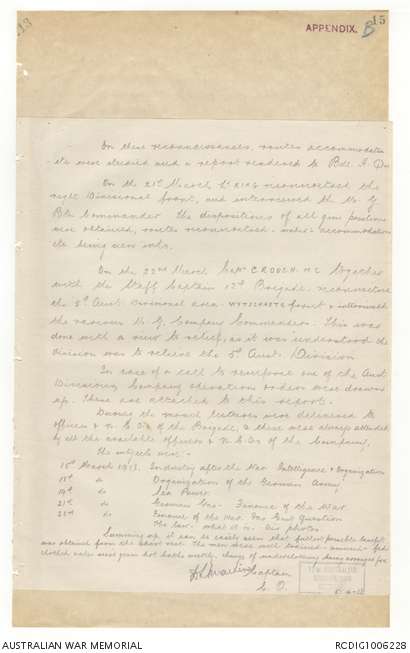 APPENDIX. B 15
On these reconnaissances, routes accommodation
etc were studied and a report rendered to Bde. I.
On the 21st March Lt KING reconnoitred the
right Divisional front, and interviewed the M. G.
Bn Commander. The dispositions of all gun positions
were obtained, routes reconnoitred - water - accommodation
etc being gone into.
On the 22nd March Capt CROUCH. MC together
with the Staff Captain 12th Brigade, reconnoitred
the 5th Aust. Divisional area. WYTSCHAETE front &
the various M. G. Company Commanders. This was
done with a view to relief, as it was understood the
Division was to relieve the 5th Aust. Division
In case of a call to reinforce one of the Aust
Divisions, Company operation orders were drawn
up. These are attached to this report.
During the month lectures were delivered to
officers & N.C.Os of the Brigade, & these were always attended
by all the available officers & N.C.Os of the Company,
The subjects were:-
15th March 1918. Industry after the War. Intelligence & Organization
18th do Organization of the German Army
19th do Sea Power.
21st do German Gas - Finance of the War.
22nd do Finance of the War.
The law - what it is. Air photos.
Summing up it can be easily seen that fullest possible benefit
was obtained from the short rest. The men were well trained - amused - fed
clothed, sales were given hot baths weekly, change of underclothing being arranged for
Captain
C. O.
AUSTRALIAN WAR MEMORIAL
RCDIG1006228